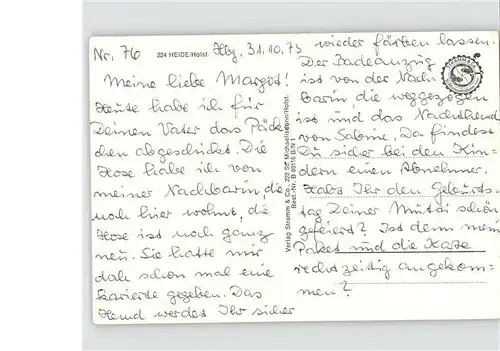 Nr. 76
224 HEIDE/Holst.
Hbg. 31.10.73
Meine liebe Margot!
Heute habe ich für
Deinen Vater das Päck
chen abgeschickt. Die
Hose habe ich von
meiner Nachbarin, die
noch hier wohnt, die
Hose ist noch ganz
neu. Sie hatte mir
doch schon mal eine
karierte gegeben. Das
Hemd werdet Ihr sicher
Verlag Stramm & Co., 222 St. Michaelisdonn/Holst.
Best.-Nr. B 6016 EN
wieder färben lassen.
Der Badeanzug
ist von der Nach
barin, die weggezogen
ist und das Nachthemd
von Sabine. Da findest
Du sicher bei den Kin
dern einen Abnehmer.
Habt Ihr den Geburts
tag Deiner Mutti schön
gefeiert? Ist denn mein
Paket und die Karte
rechtzeitig angekom
men?